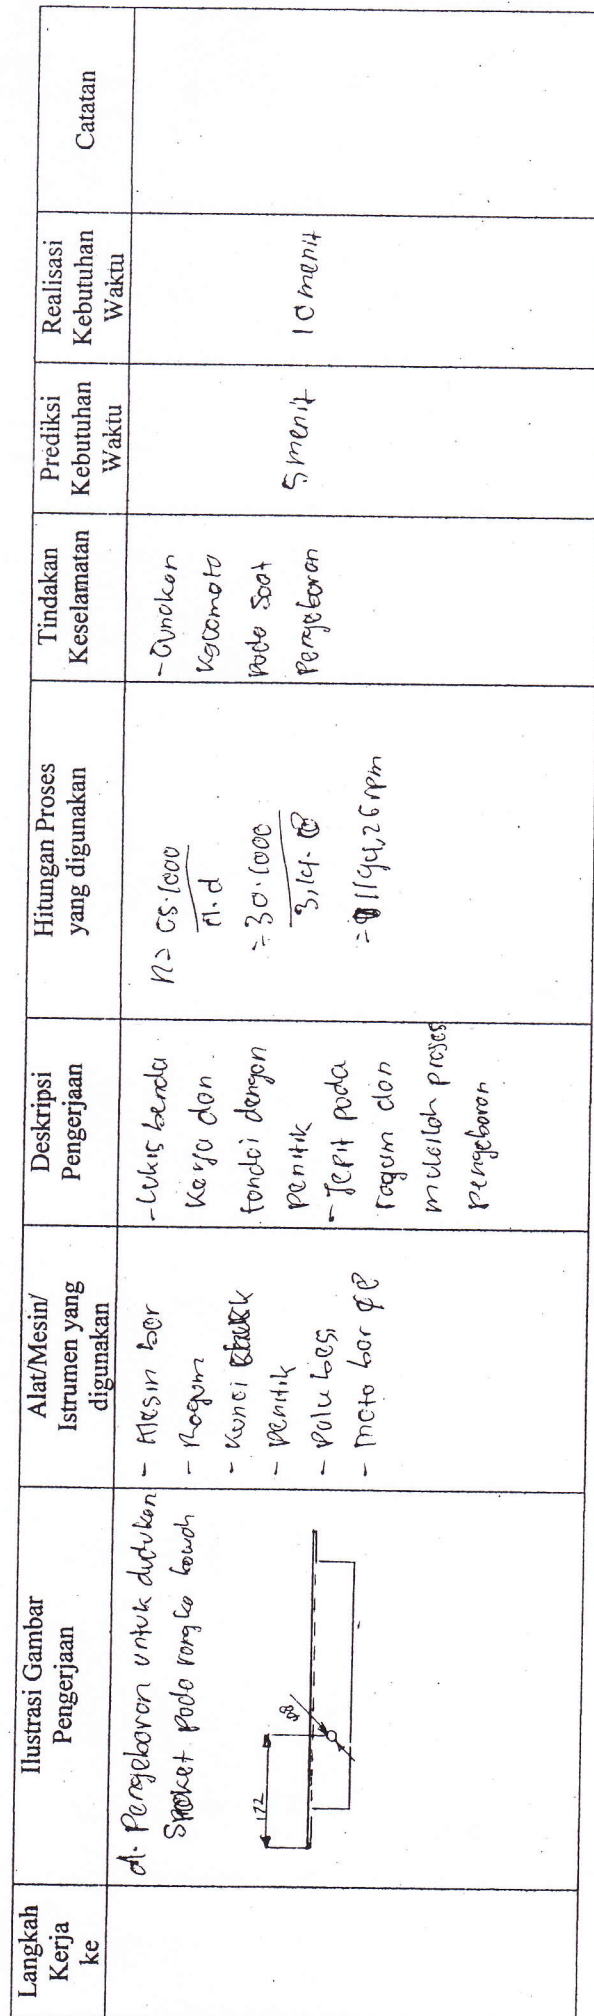 Langkah
Kerja
ke
Ilustrasi Gambar
Pengerjaan
Alat/Mesin/
Istrumen yang
digunakan
Deskripsi
Pengerjaan
Hitungan Proses
yang digunakan
Tindakan
Keselamatan
Prediksi
Kebutuhan
Waktu
Realisasi
Kebutuhan
Waktu
Catatan
d. Pengeboran untuk dudukan
Sproket pada rangka bawah
172
ø8
- Mesin bor
- Ragum
- Kunci
- Penitik
- Palu besi
- mata bor ø8
- Lukis benda
kerja dan
tandai dengan
penitik
- Jepit pada
ragum dan
mulailah proses
pengeboran
n = Cs.1000
π.d
= 30.1000
3,14.8
= 1194,26 rpm
- Gunakan
kacamata
pada saat
pengeboran
5 menit
10 menit